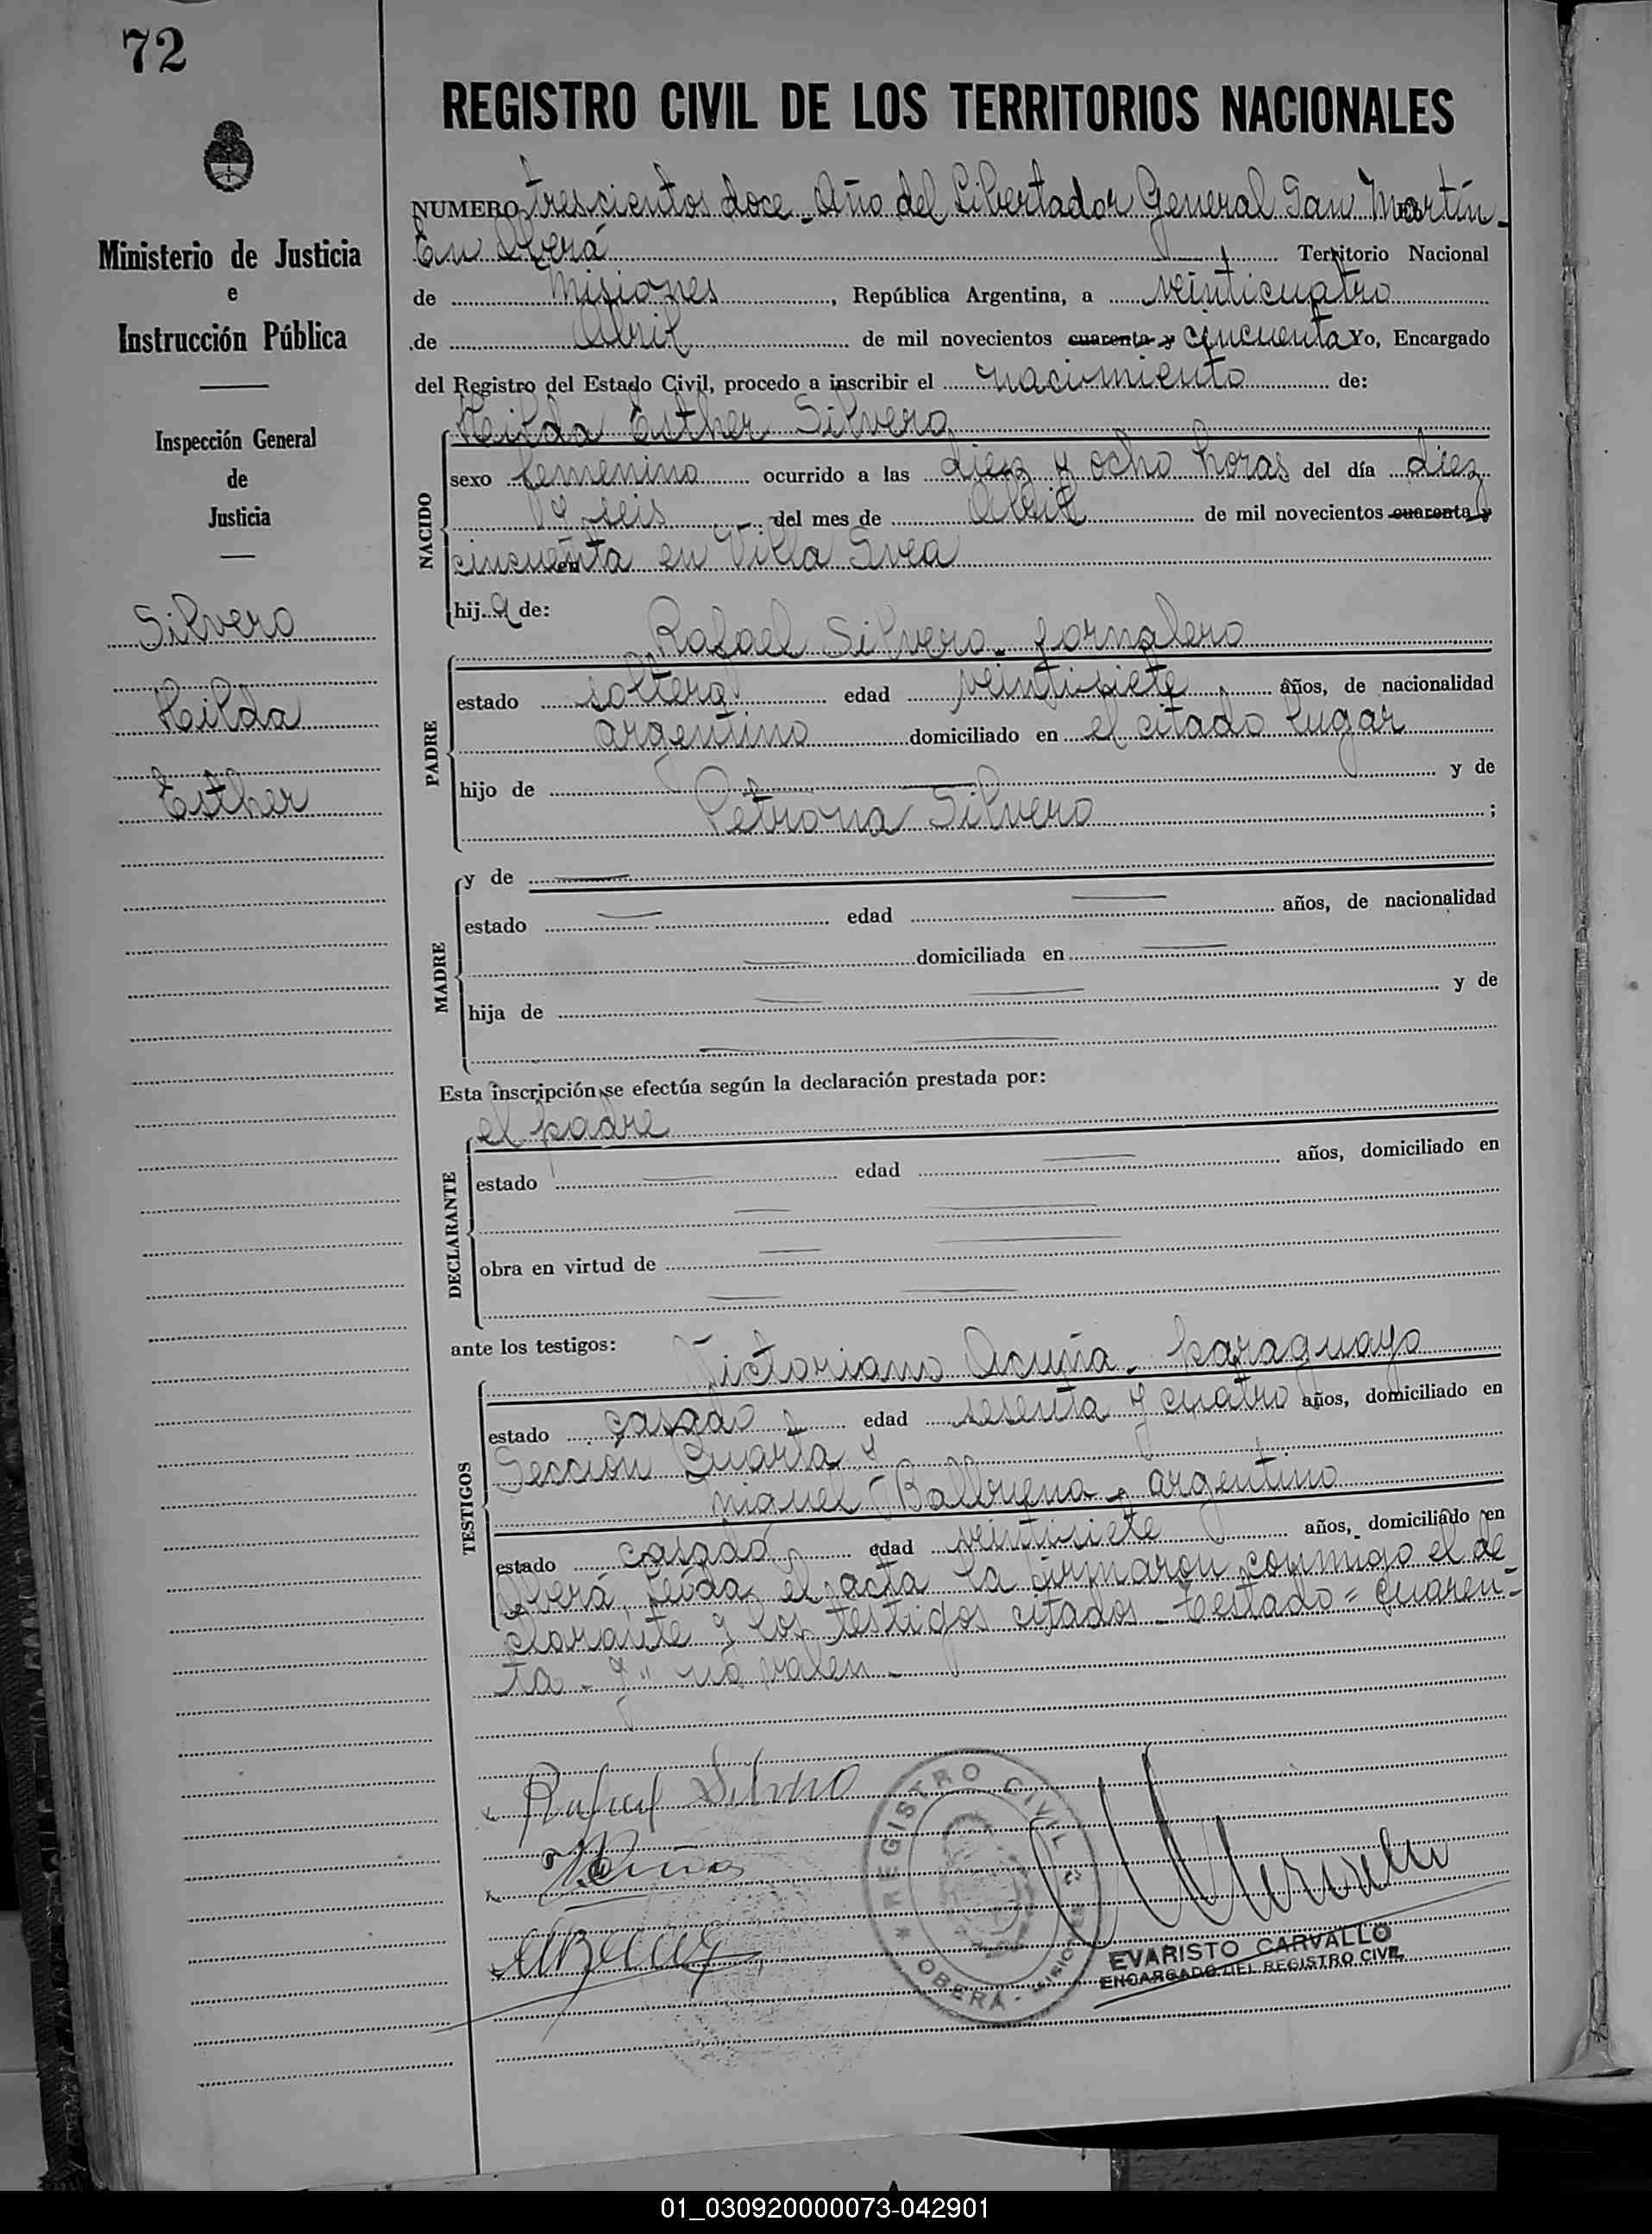 72
REGISTRO CIVIL DE LOS TERRITORIOS NACIONALES
Ministerio de Justicia
e
Instrucción Pública
Inspección General
de
Justicia
Silvero
Hilda
Esther
NUMERO trescientos doce - Año del Libertador General San Martín -
En Oberá Territorio Nacional
de Misiones, República Argentina, a veinticuatro
de Abril de mil novecientos cuarenta y cincuenta Yo, Encargado
del Registro del Estado Civil, procedo a inscribir el nacimiento de:
NACIDO
Hilda Esther Silvero
sexo femenino ocurrido a las diez y ocho horas del día diez
y seis del mes de Abril de mil novecientos cuarenta y
cincuenta en Villa Svea
hija de:
PADRE
Rafael Silvero - jornalero
estado soltero edad veintisiete años, de nacionalidad
argentino domiciliado en el citado lugar
hijo de y de
Petrona Silvero ;
MADRE
y de
estado edad años, de nacionalidad
domiciliada en
hija de y de
Esta inscripción se efectúa según la declaración prestada por:
DECLARANTE
el padre
estado edad años, domiciliado en
obra en virtud de
ante los testigos:
TESTIGOS
Victoriano Acuña - paraguayo
estado casado edad sesenta y cuatro años, domiciliado en
Sección Cuarta y
Miguel Balbuena - argentino
estado casado edad veintisiete años, domiciliado en
Oberá, leída el acta la firmaron conmigo el de
clarante y los testigos citados - Testado = cuaren=
ta - y" no valen -
Rafael Silvero
REGISTRO CIVIL
OBERA - MISIONES
EVARISTO CARVALLO
ENCARGADO DEL REGISTRO CIVIL
01_030920000073-042901